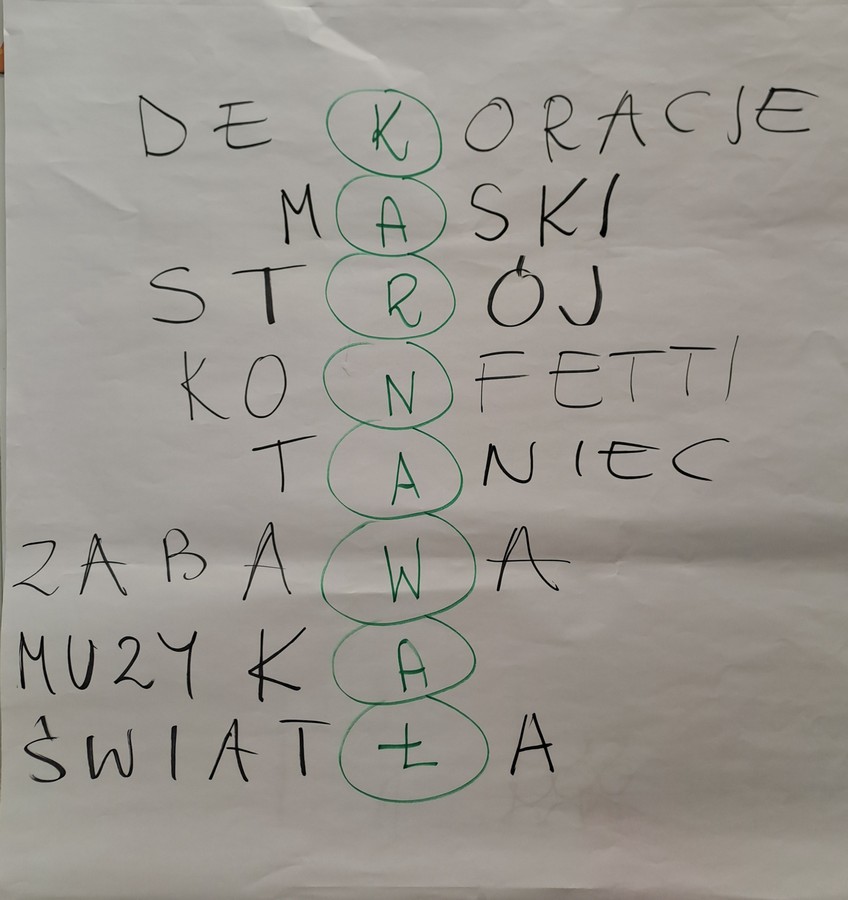 DEKORACJE
MASKI
STRÓJ
KONFETTI
TANIEC
ZABAWA
MUZYKA
ŚWIATŁA